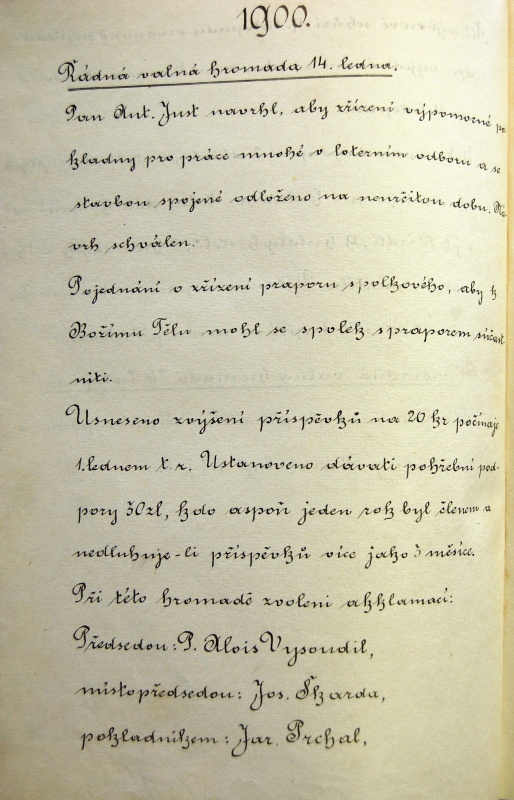 1900.
Řádná valná hromada 14. ledna.
Pan Ant. Just navrhl, aby zřízení výpomocné po-
kladny pro práce mnohé v loterním odboru a se
stavbou spojené odloženo na neurčitou dobu. Ná-
vrh schválen.
Pojednání o zřízení praporu spolkového, aby k
Božímu Tělu mohl se spolek s praporem súčast
niti.
Usneseno zvýšení příspěvků na 20 kr počínaje
1. lednem t. r. Ustanoveno dávati pohřební pod-
pory 30zl, kdo aspoň jeden rok byl členem a
nedluhuje-li příspěvků více jako 3 měsíce.
Při této hromadě zvoleni akklamací:
Předsedou: P. Alois Vysoudil,
místopředsedou: Jos. Škarda,
pokladníkem: Jar. Prchal,